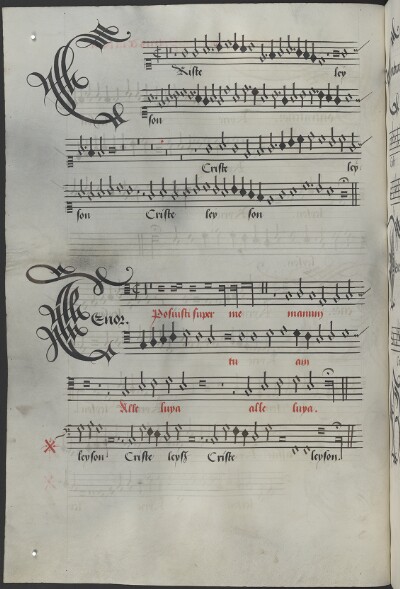 Criste ley
son
Criste ley
son Criste ley son
Tenor. Posuisti super me manum
tu am
Alle luya alle luya.
leyson Criste leyson Criste leyson.